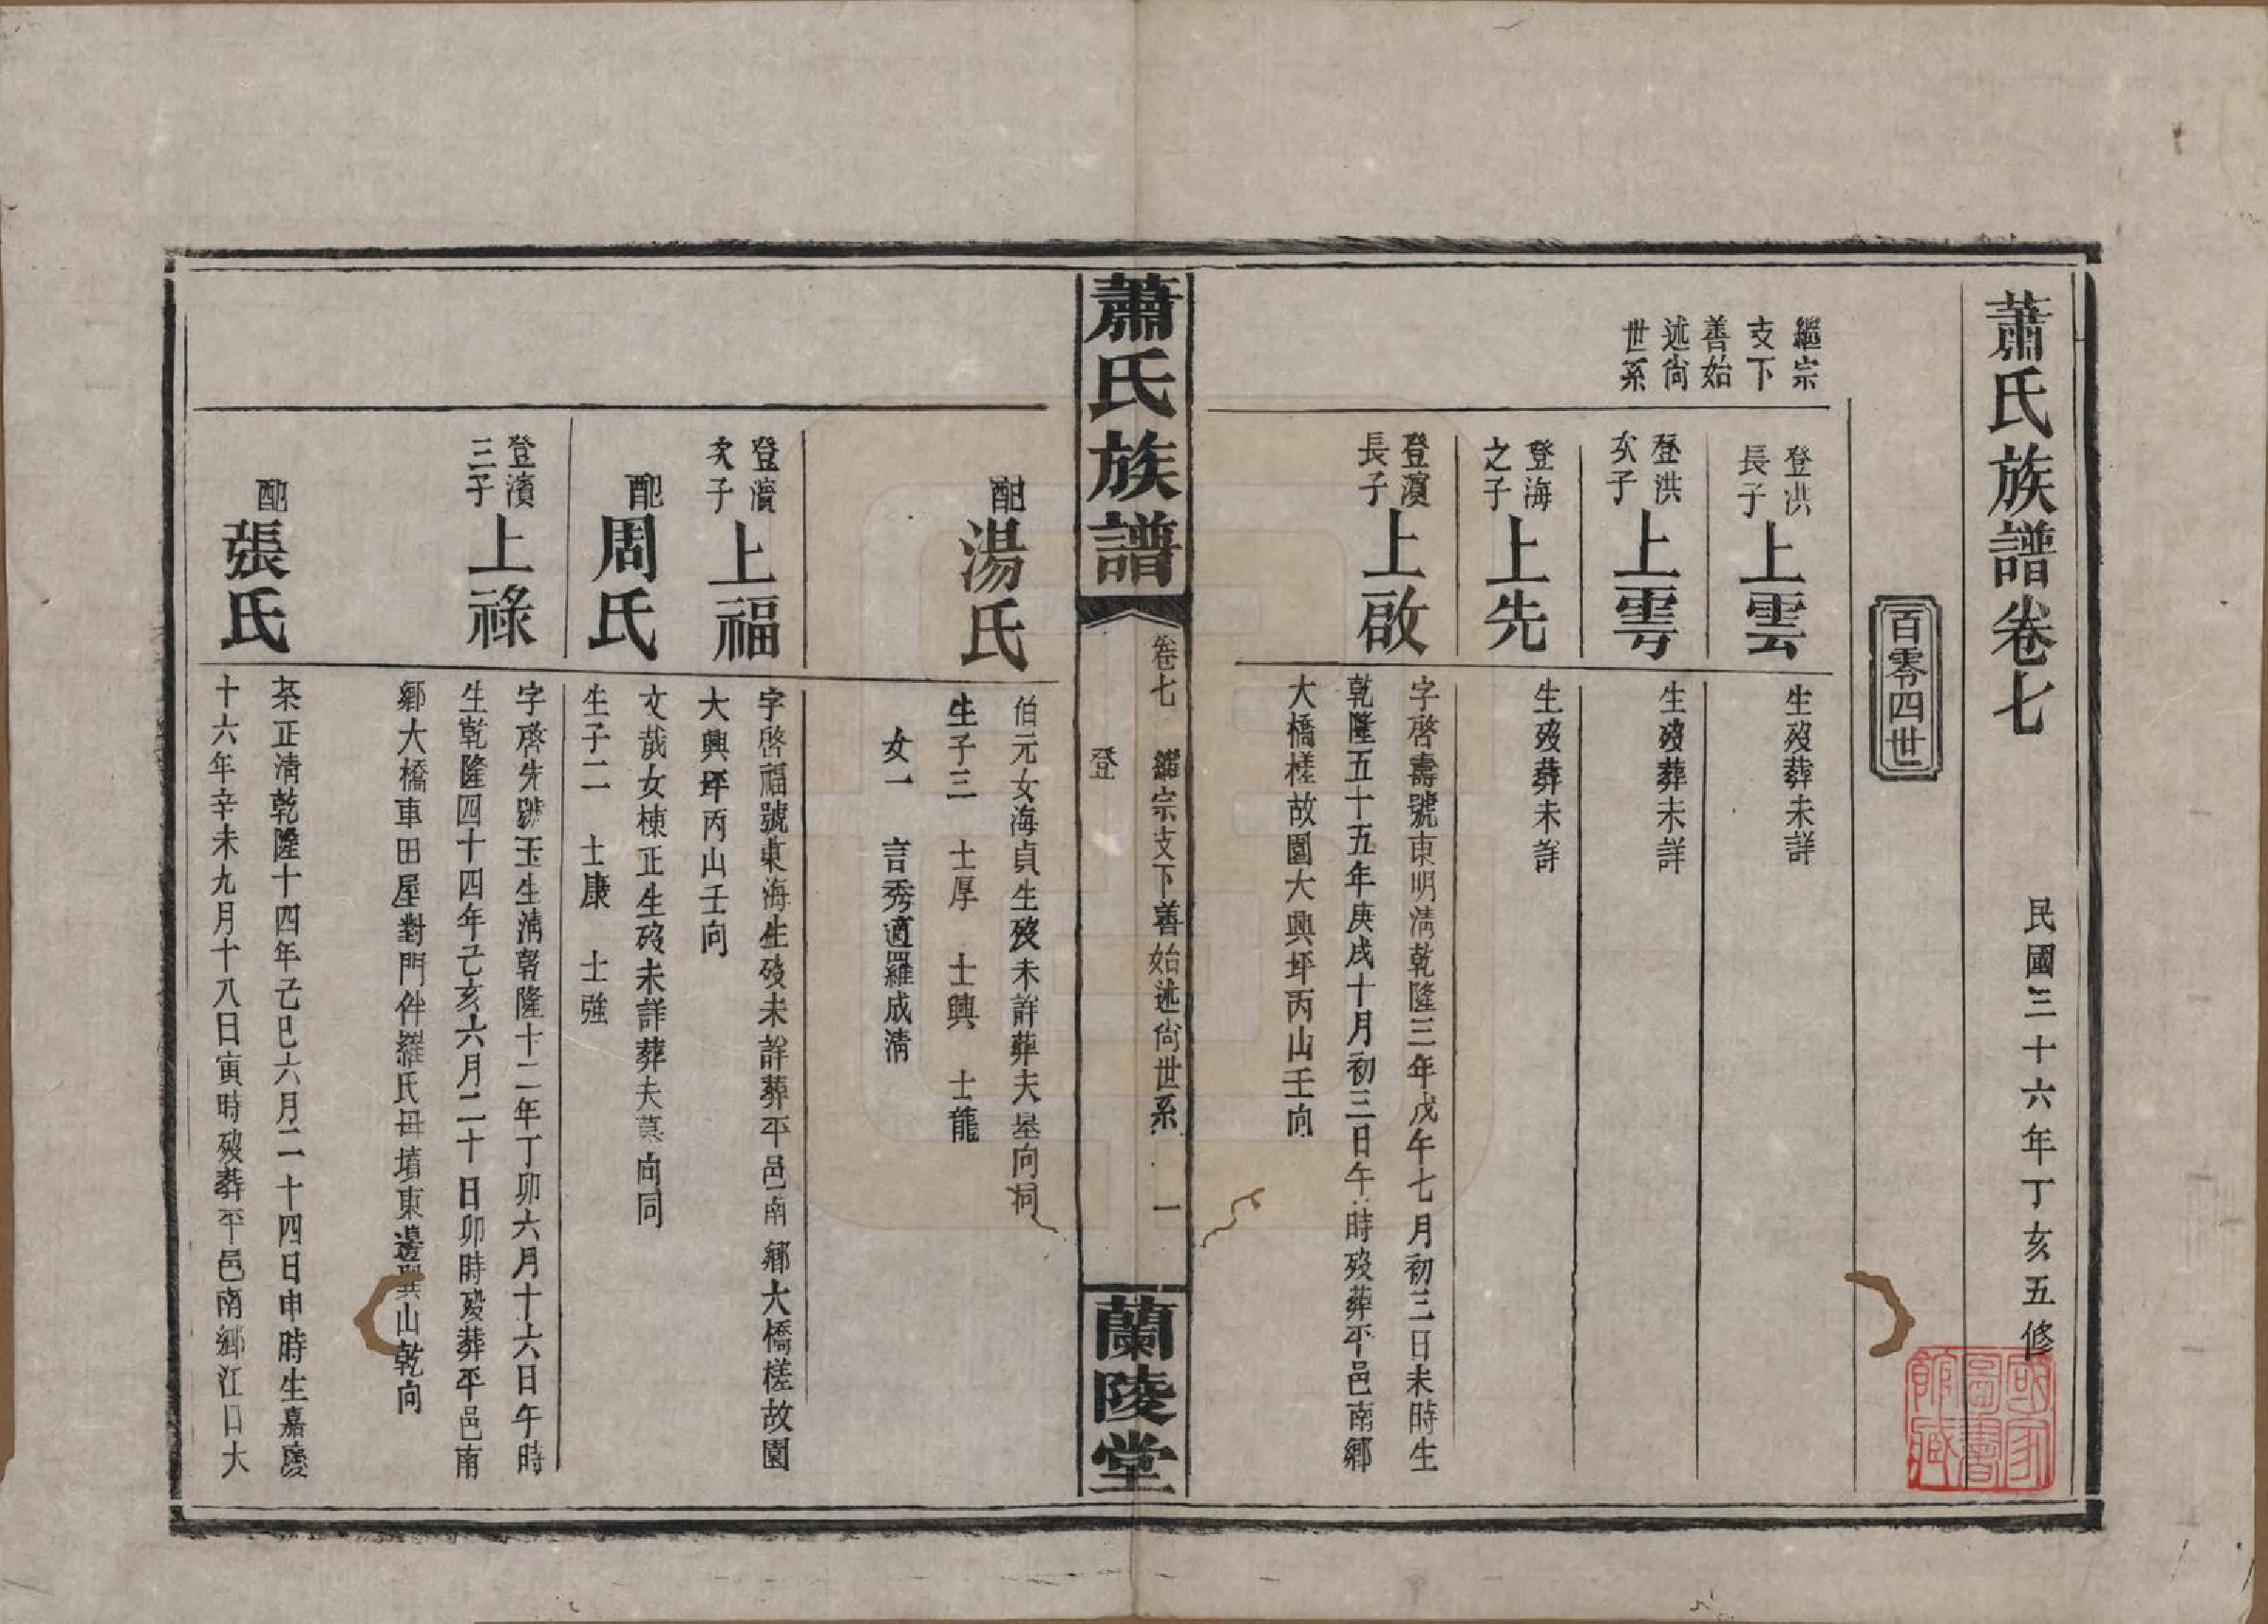 蕭氏族譜卷七
民國三十六年丁亥五修
百零四世
繼宗
支下
善始
述尙
世系
登洪
長子
上雲
生歿葬未詳
登洪
次子
上雩
生歿葬未詳
登海
之子
上先
生歿葬未詳
登濱
長子
上啟
字啓壽號東明淸乾隆三年戊午七月初三日未時生
乾隆五十五年庚戌十月初三日午時歿葬平邑南鄉
大橋槎故園大興坪丙山壬向
蕭氏族譜
卷七 繼宗支下善始述尙世系 一
登
蘭陵堂
配
湯氏
伯元女海貞生歿未詳葬夫墓向同
生子三 士厚 士興 士龍
女一 言秀適羅成淸
登濱
次子
上福
字啓福號東海生歿未詳葬平邑南鄉大橋槎故園
大興坪丙山壬向
配
周氏
文哉女棟正生歿未詳葬夫墓向同
生子二 士康 士強
登濱
三子
上祿
字啓先號玉生淸乾隆十二年丁卯六月十六日午時
生乾隆四十四年己亥六月二十日卯時歿葬平邑南
鄉大橋車田屋對門件羅氏母墳東邊巽山乾向
配
張氏
茶正淸乾隆十四年己巳六月二十四日申時生嘉慶
十六年辛未九月十八日寅時歿葬平邑南鄉江口大
國家
圖書
館藏